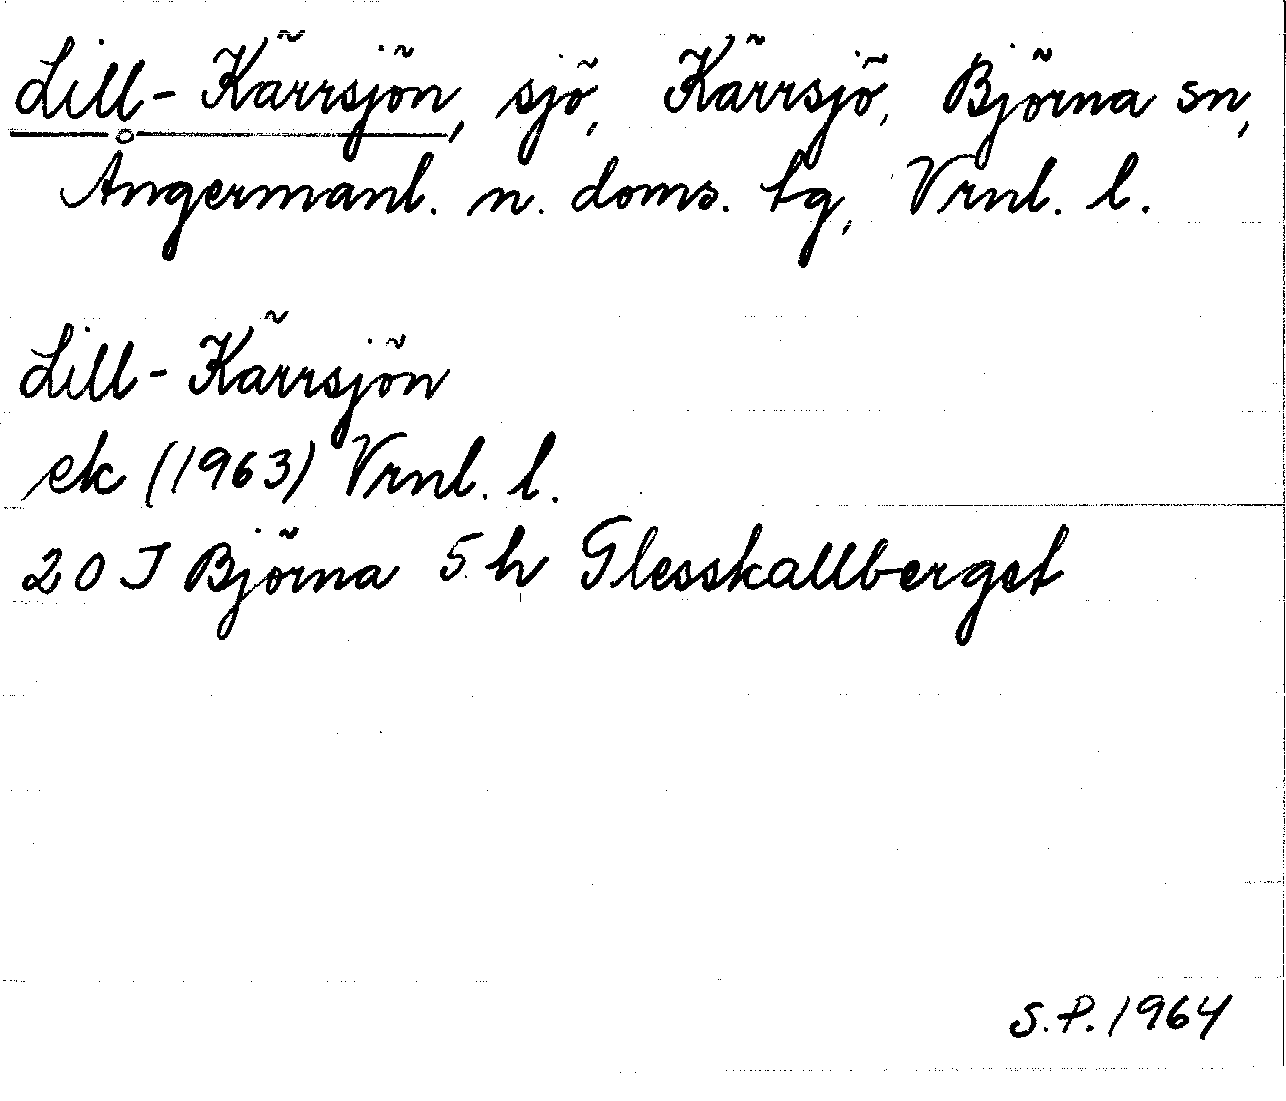 Lill-Kärrsjön, sjö, Kärrsjö, Björna sn,
Ångermanl. n. doms. tg, Vrnl. l.
Lill-Kärrsjön
ek (1963) Vrnl. l.
20 J Björna 5 h Glesskallberget
S.P. 1964